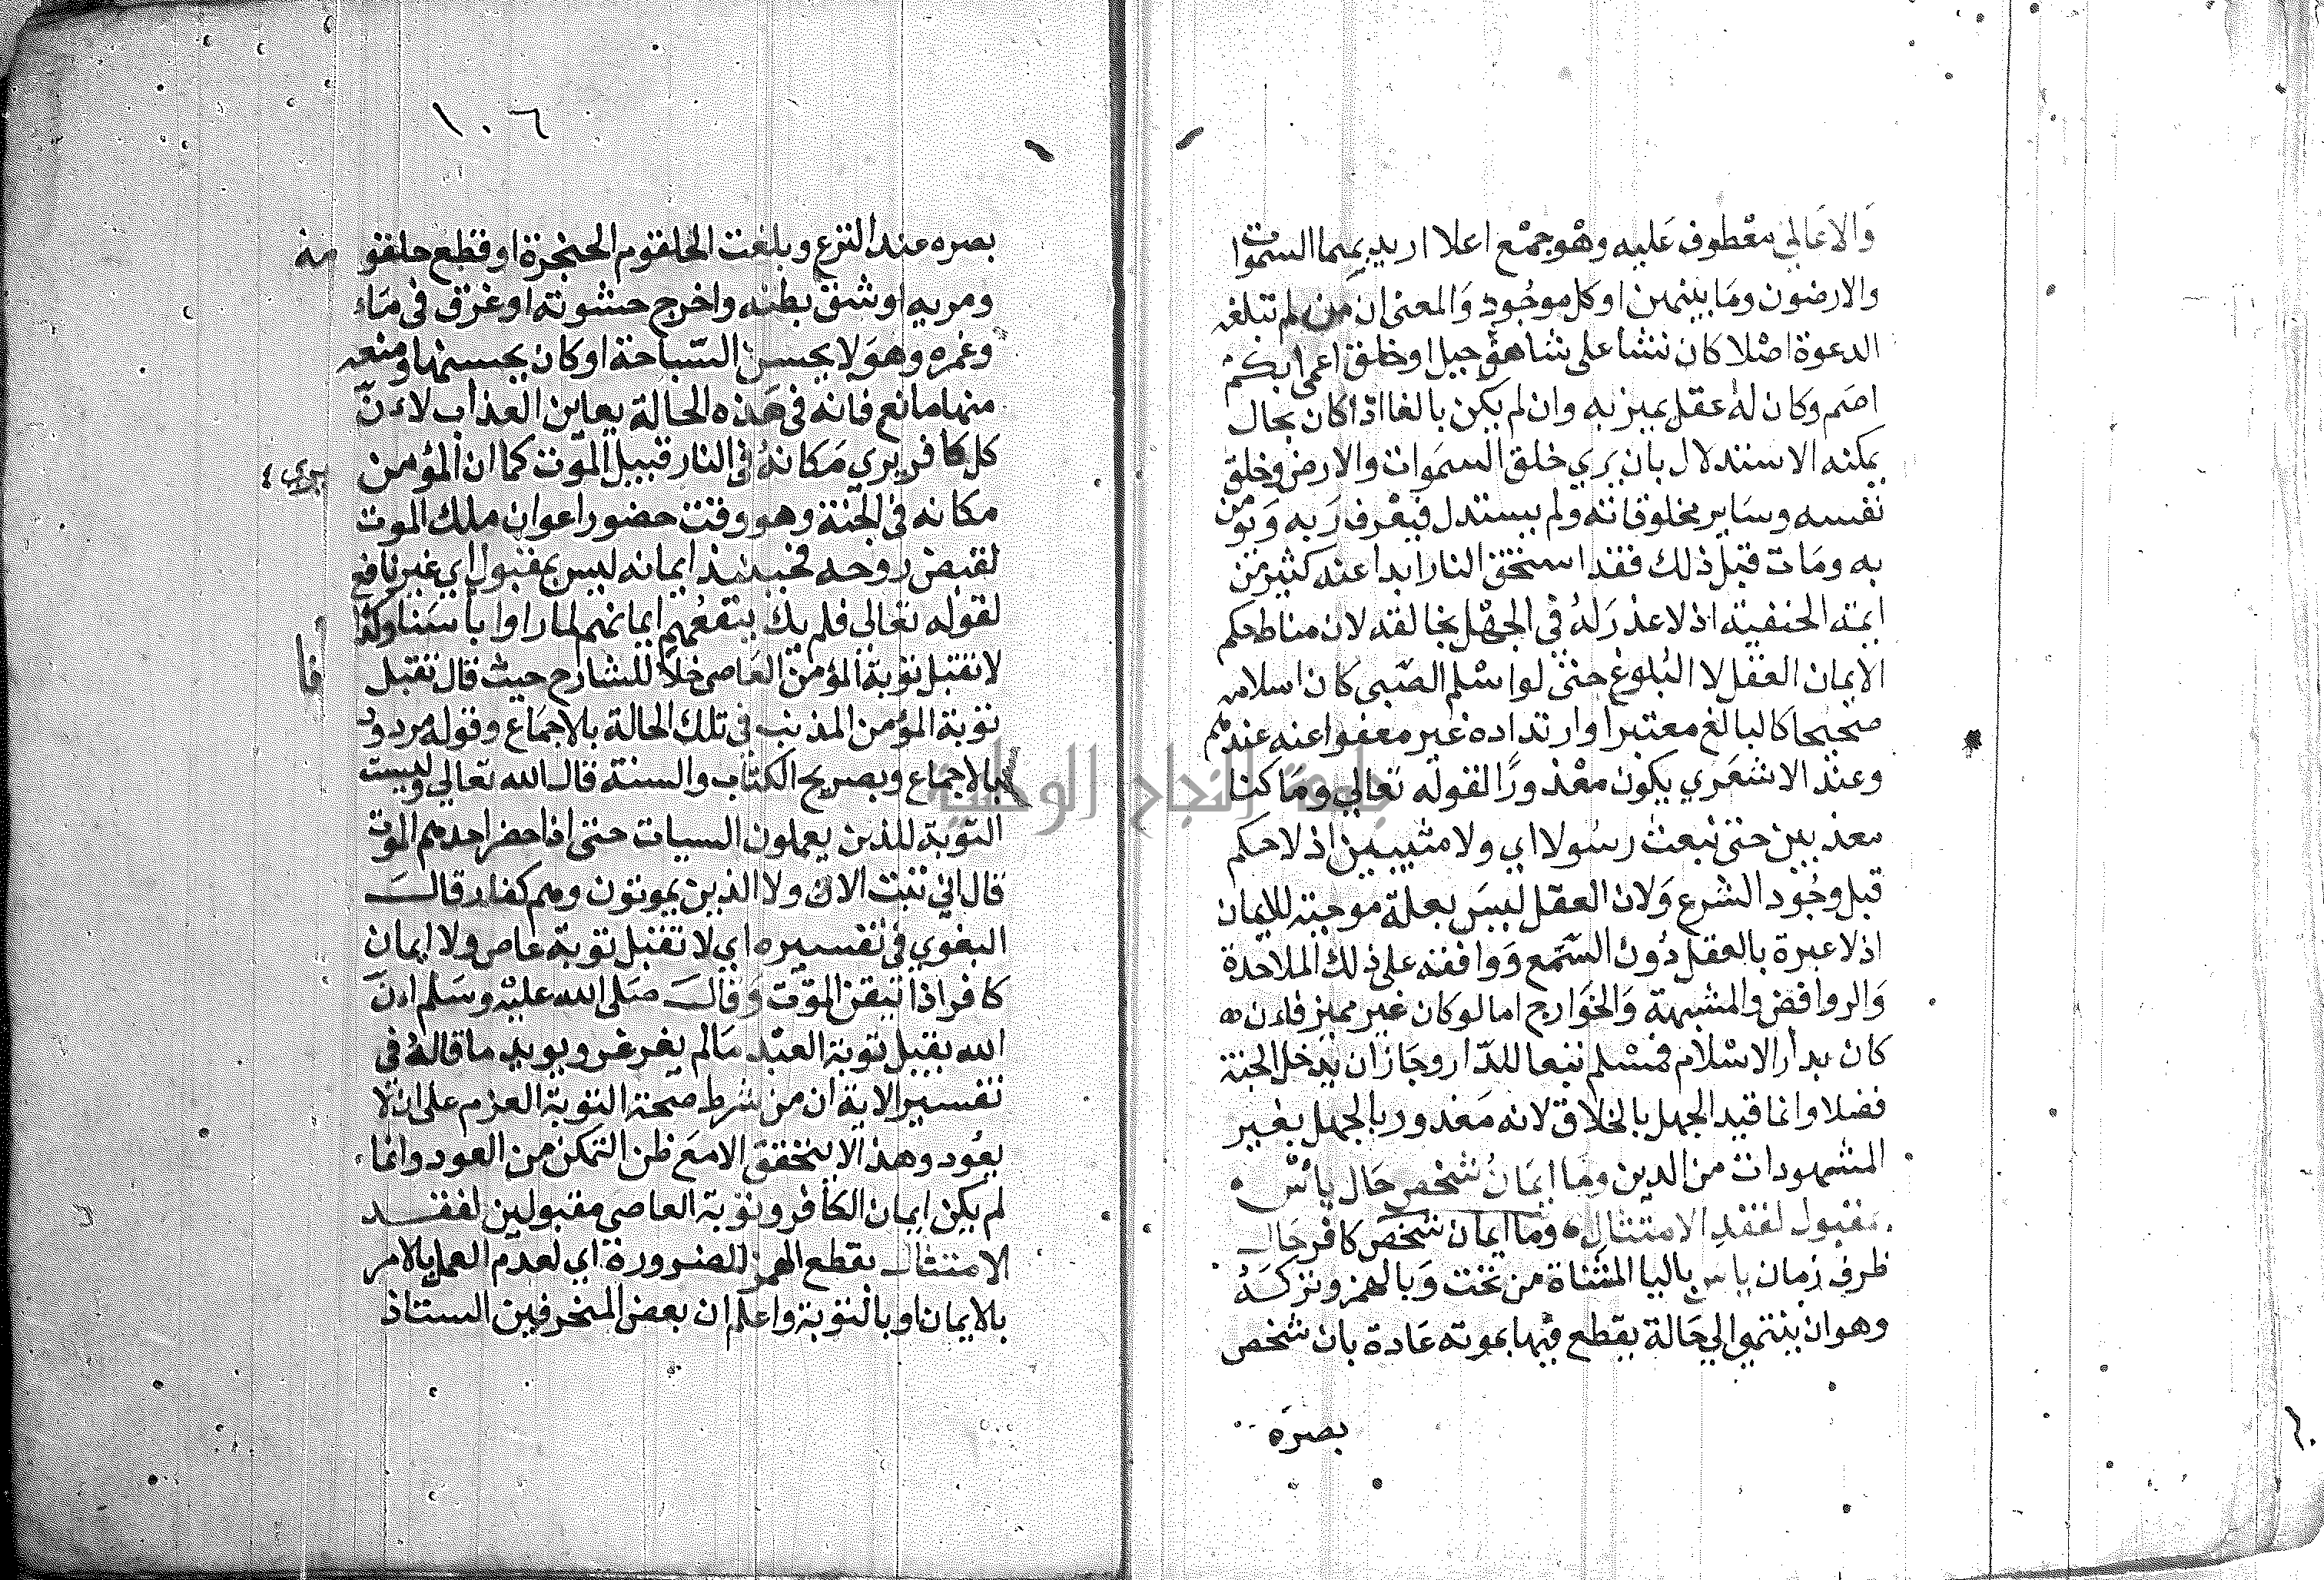 والاعالي معطوف عليه وهو جمع اعلا اريد بهما السموات
والارضون وما بينهن او كل موجود والمعنى ان من لم تبلغه
الدعوة اصلا كان نشأ على شاهق جبل او خلق اعمى ابكم
اصم وكان له عقل يميز به وان لم يكن بالغا اذا كان بحال
يمكنه الاستدلال بان يري خلق السموات والارض وخلق
نفسه وساير مخلوقاته ولم يستدل فيعرف ربه ويؤمن
به ومات قبل ذلك فقد استحق النار ابدا عنه كثير من
ايمة الحنفية اذ لا عذر له في الجهل بخالقه لان مناط حكم
الايمان العقل لا البلوغ حتى لو اسلم الصبي كان اسلامه
صحيحا كالبالغ معتبرا وارتداده غير معفوا عنه عندهم
وعند الاشعري يكون معذورا لقوله تعالي وما كنا
معذبين حتى نبعث رسولا اي ولا مثيبين اذ لا حكم
قبل وجود الشرع ولان العقل ليس بعلة موجبة للايمان
اذ لا عبرة بالعقل دون السمع ووافقه على ذلك الملاحدة
والروافض والمشبهة والخوارج اما لو كان غير مميز فان
كان بدار الاسلام فمسلم تبعا للدار وجاز ان يدخل الجنة
فضلا وانما قيد الجهل بالخلاق لانه معذور بالجهل بغير
المشهودات من الدين وما ايمان شخص حال يأس
بمقبول لفقد الامتثال وما ايمان شخص كافر حال
ظرف زمان ياس باليا المثناة من تحت وبالهمز وتركه
وهو ان ينتهي الي حالة يقطع فيها بموته عادة بان شخص
بصره
١٠٦
بصره عند النزع وبلغت الحلقوم الحنجرة او قطع حلقو مه
ومريه او شق بطنه واخرج حشوته او غرق في ماء
وغمره وهو لا يحسن السباحة او كان يحسنها ومنعه
منها مانع فانه في هذه الحالة يعاين العذاب لان
كل كافر يري مكانه في النار قبيل الموت كما ان المؤمن يري
مكانه في الجنة وهو وقت حضور اعوان ملك الموت
لقبض روحه فحينئذ ايمانه ليس بمقبول اي غير نافع
لقوله تعالي فلم يك ينفعهم ايمانهم لما راوا بأسنا وكذا
لا تقبل توبة المؤمن العاصي خلا فا للشارح حيث قال تقبل
توبة المؤمن المذنب في تلك الحالة بالاجماع وقوله مردود
بالاجماع وبصريح الكتاب والسنة قال الله تعالي وليست
التوبة للذين يعملون السيات حتى اذا حضر احدهم الموت
قال اني تبت الان ولا الذين يموتون وهم كفار قال
البغوي في تفسيره اي لا تقبل توبة عاص ولا ايمان
كافر اذا تيقن الموت وقال صلى الله عليه وسلم ان
الله يقبل توبة العبد مالم يغرغر ويويد ما قاله في
تفسير الاية ان من شرط صحة التوبة العزم على ان لا
يعود وهذا لا يتحقق الا مع ظن التمكن من العود وانما
لم يكن ايمان الكافر وتوبة العاصي مقبولين لفقد
الامتثال بقطع الهمز للضرورة اي لعدم العمل بالامر
بالايمان او بالتوبة واعلم ان بعض المنحرفين استاذ
جامعة النجاح الوطنية